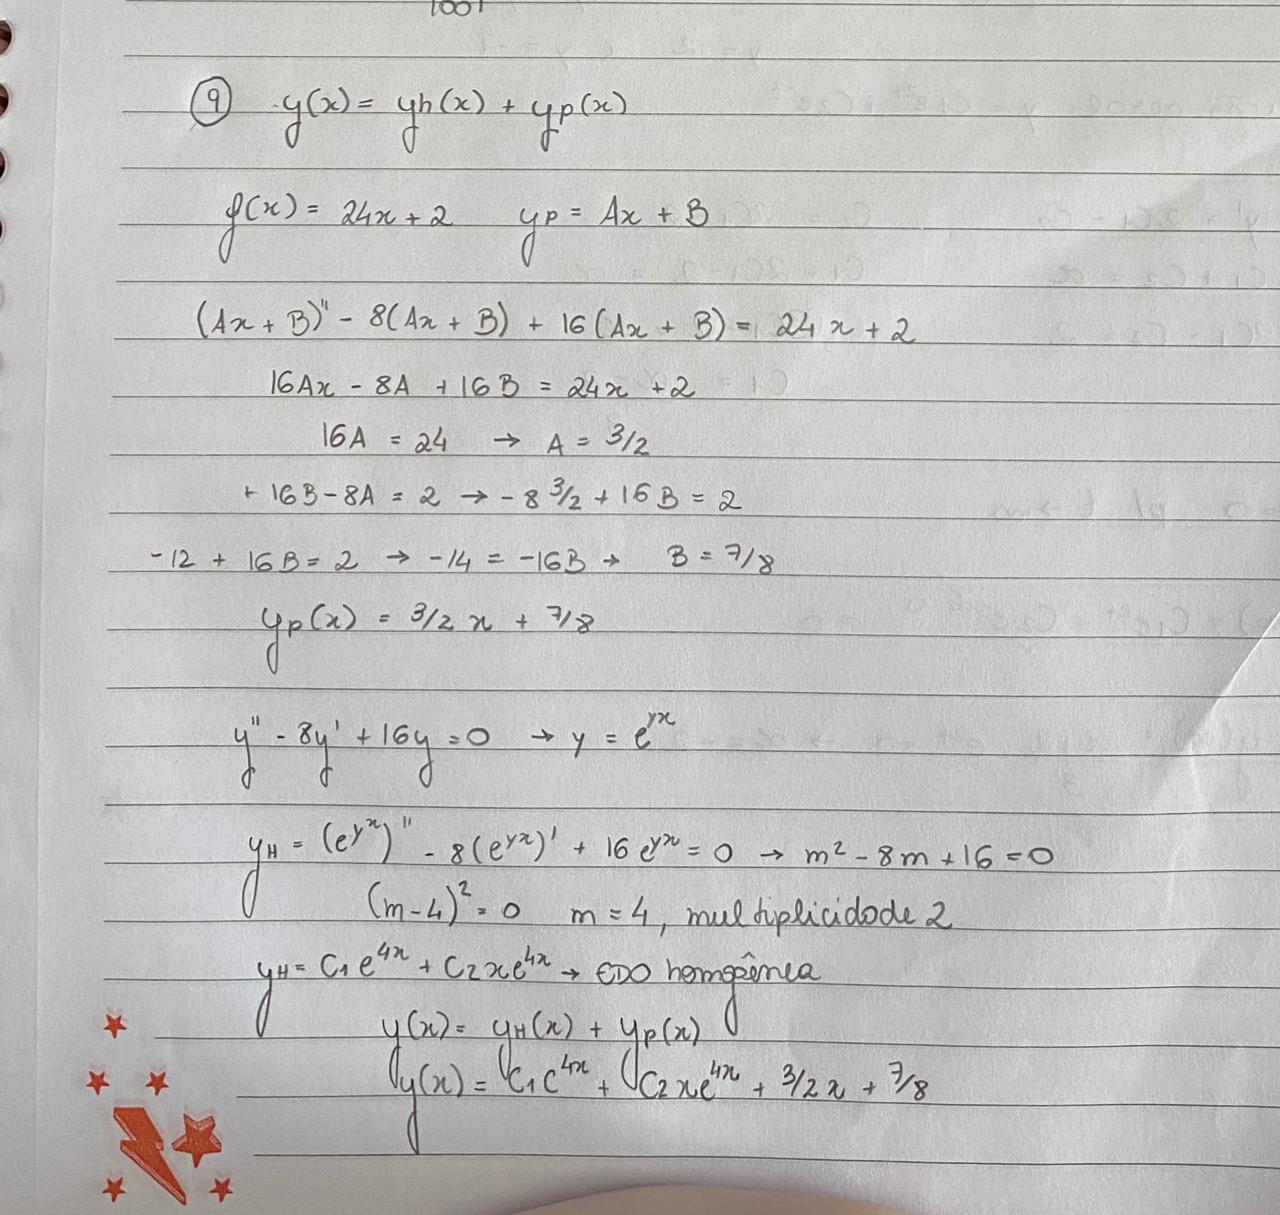 1001
⑨ y(x) = yh(x) + yp(x)
f(x) = 24x + 2 yp = Ax + B
(Ax + B)'' - 8(Ax + B) + 16(Ax + B) = 24x + 2
16Ax - 8A + 16B = 24x + 2
16A = 24 → A = 3/2
+ 16B - 8A = 2 → - 8 3/2 + 16B = 2
-12 + 16B = 2 → -14 = -16B → B = 7/8
yp(x) = 3/2 x + 7/8
y'' - 8y' + 16y = 0 → y = e^yx
yH = (e^yx)'' - 8(e^yx)' + 16 e^yx = 0 → m² - 8m + 16 = 0
(m-4)² = 0 m = 4, multiplicidode 2
yH = C1 e^4x + C2 x e^4x → EDO homogênea
y(x) = yH(x) + yp(x)
y(x) = C1 e^4x + C2 x e^4x + 3/2 x + 7/8